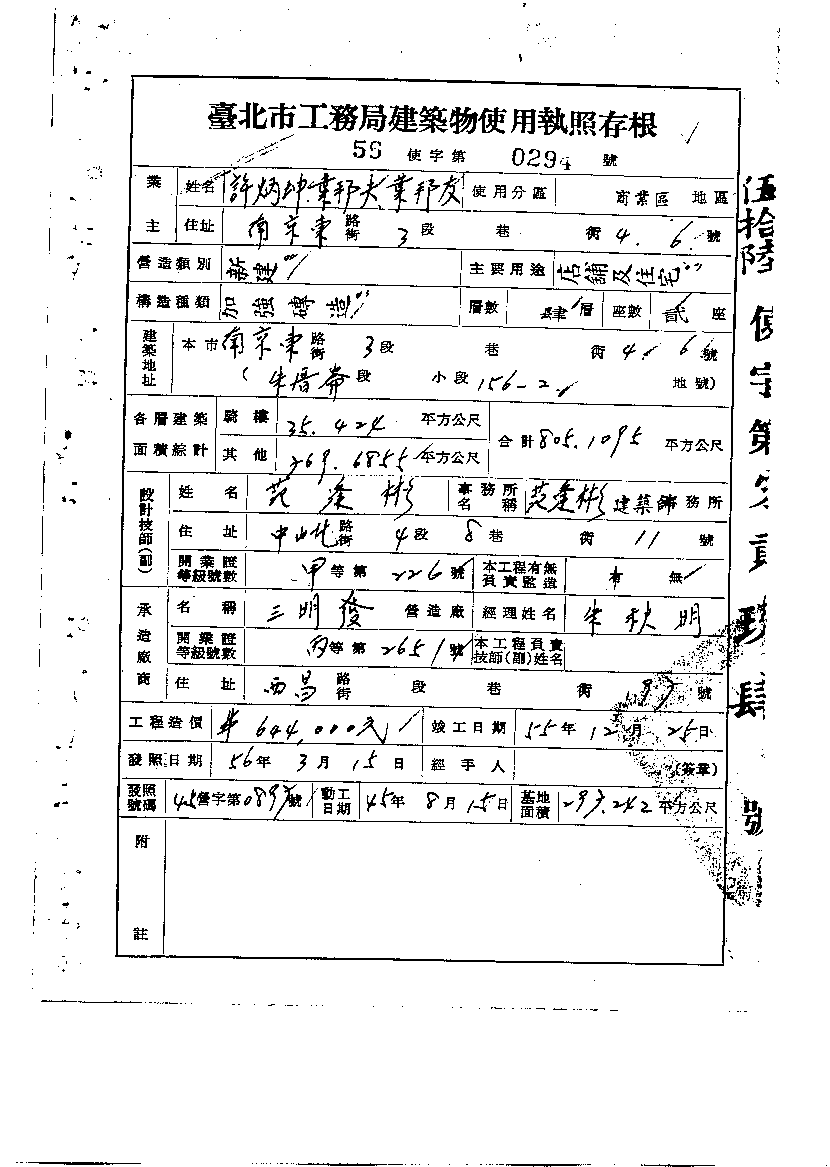 臺北市工務局建築物使用執照存根
56 使字第 0294 號
業主 姓名 許炳坤 葉邦夫 葉邦友 使用分區 商業區 地區
住址 南京東 路街 3 段 巷 街 4. 6 號
營造類別 新建 主要用途 店舖及住宅
構造種類 加強磚造 層數 肆層 座數 貳座
建築地址 本市 南京東 路街 3 段 巷 街 4. 6 號
( 朱厝崙 段 小段 156-2 地號)
各層建築面積綜計 騎樓 35.424 平方公尺 合計 805.1095 平方公尺
其他 269.6855 平方公尺
設計技師(副) 姓名 范逢彬 事務所名稱 范逢彬 建築師事務所
住址 中山北 路街 4 段 8 巷 街 11 號
開業證等級號數 甲等第 226 號 本工程有無負責監造 有 無
承造廠商 名稱 三明發 營造廠 經理姓名 朱 明
開業證等級號數 丙等第 2651 號 本工程負責技師(副)姓名
住址 西昌 路街 段 巷 街 號
工程造價 644,000元 竣工日期 55年12月25日
發照日期 56年3月15日 經手人 (簽章)
發照號碼 45營字第089 號 動工日期 45年8月15日 基地面積 .242 平方公尺
附註
伍拾陸使字第 貳玖肆號